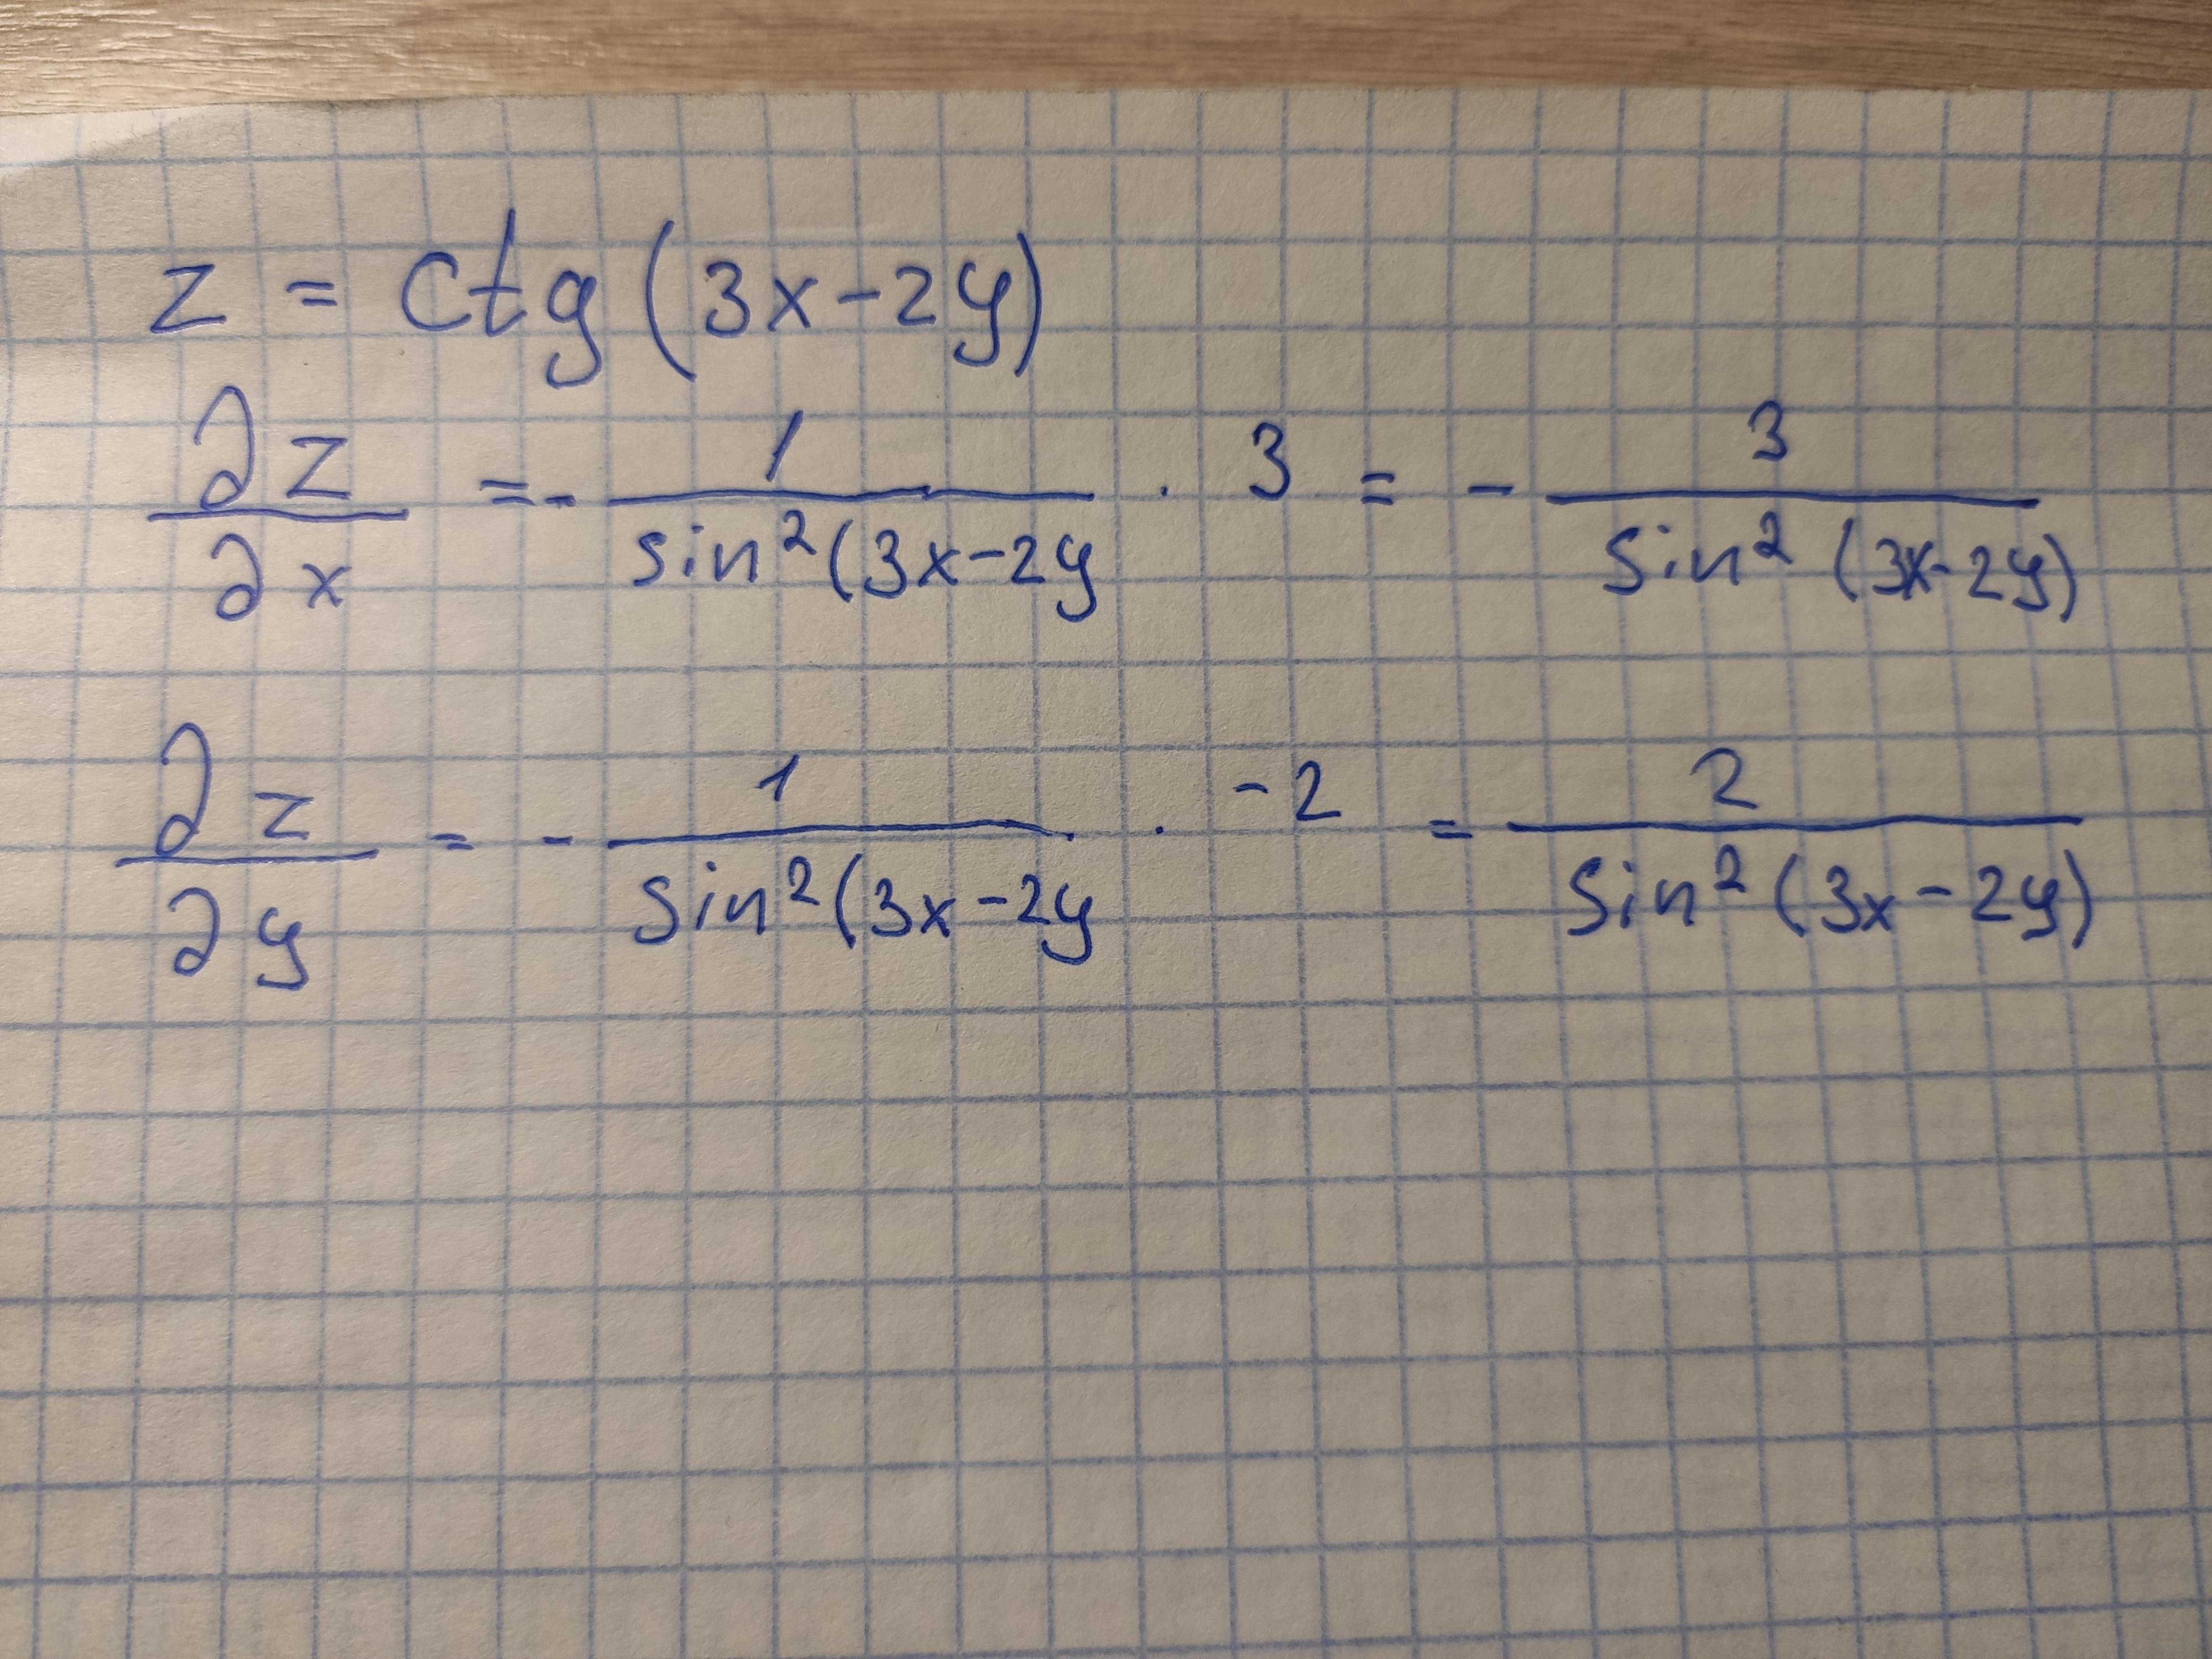 z = ctg (3x-2y)
∂z/∂x = - 1/sin²(3x-2y · 3 = - 3/sin² (3x-2y)
∂z/∂y = - 1/sin²(3x-2y · -2 = 2/sin² (3x-2y)